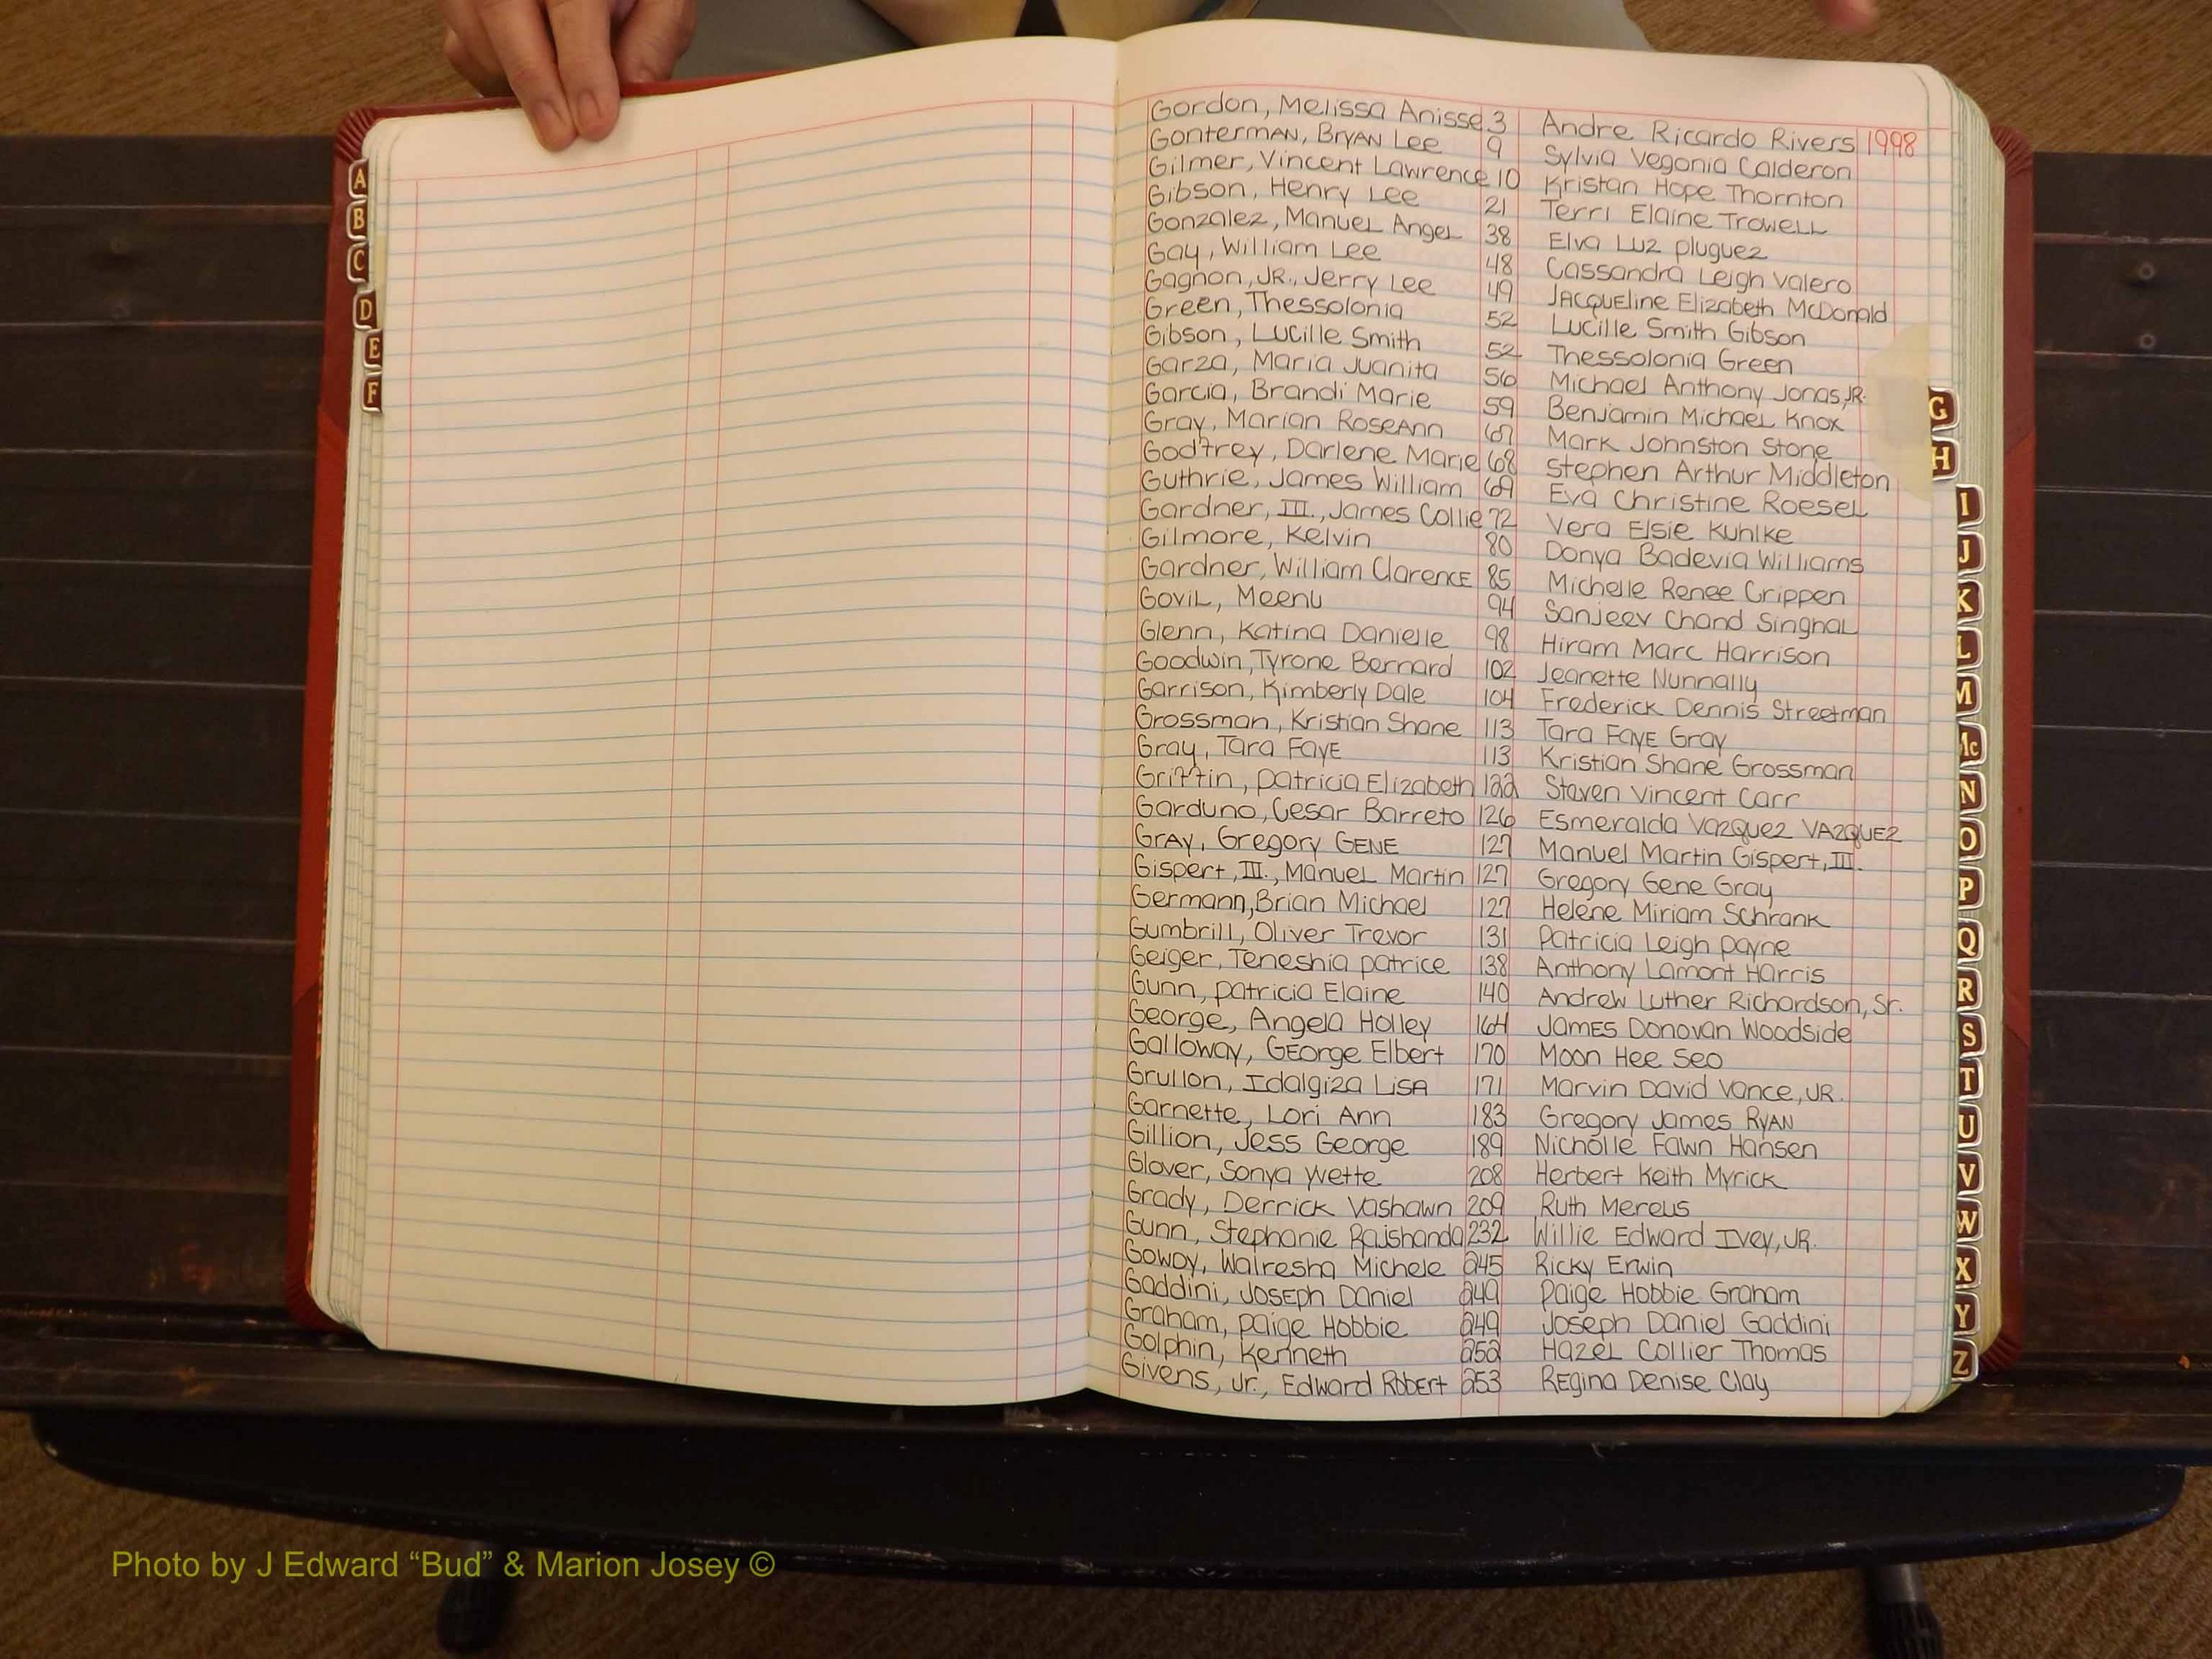 Gordon, Melissa Anisse 3 Andre Ricardo Rivers 1998
Gonterman, Bryan Lee 9 Sylvia Vegonia Calderon
Gilmer, Vincent Lawrence 10 Kristan Hope Thornton
Gibson, Henry Lee 21 Terri Elaine Trowell
Gonzalez, Manuel Angel 38 Elva Luz pluguez
Gay, William Lee 48 Cassandra Leigh Valero
Gagnon, JR., Jerry Lee 49 Jacqueline Elizabeth McDonald
Green, Thessolonia 52 Lucille Smith Gibson
Gibson, Lucille Smith 52 Thessolonia Green
Garza, Maria Juanita 56 Michael Anthony Jonas, JR.
Garcia, Brandi Marie 59 Benjamin Michael Knox
Gray, Marian RoseAnn 67 Mark Johnston Stone
Godfrey, Darlene Marie 68 Stephen Arthur Middleton
Guthrie, James William 69 Eva Christine Roesel
Gardner, III., James Collie 72 Vera Elsie Kuhlke
Gilmore, Kelvin 80 Donya Badevia Williams
Gardner, William Clarence 85 Michelle Renee Crippen
Govil, Meenu 94 Sanjeev Chand Singhal
Glenn, Katina Danielle 98 Hiram Marc Harrison
Goodwin, Tyrone Bernard 102 Jeanette Nunnally
Garrison, Kimberly Dale 104 Frederick Dennis Streetman
Grossman, Kristian Shane 113 Tara Faye Gray
Gray, Tara Faye 113 Kristian Shane Grossman
Griffin, patricia Elizabeth 122 Steven Vincent Carr
Garduno, Cesar Barreto 126 Esmeralda Vazquez VAZQUEZ
Gray, Gregory GENE 127 Manuel Martin Gispert, III.
Gispert, III., Manuel Martin 127 Gregory Gene Gray
Germann, Brian Michael 127 Helene Miriam Schrank
Gumbrill, Oliver Trevor 131 Patricia Leigh payne
Geiger, Teneshia patrice 138 Anthony Lamont Harris
Gunn, patricia Elaine 140 Andrew Luther Richardson, Sr.
George, Angela Holley 164 James Donovan Woodside
Galloway, George Elbert 170 Moon Hee Seo
Grullon, Idalgiza Lisa 171 Marvin David Vance, JR.
Garnette, Lori Ann 183 Gregory James Ryan
Gillion, Jess George 189 Nicholle Fawn Hansen
Glover, Sonya Yvette 208 Herbert Keith Myrick
Grady, Derrick Vashawn 209 Ruth Mereus
Gunn, Stephanie Rajshanda 232 Willie Edward Ivey, JR.
Gowoy, Walresha Michele 245 Ricky Erwin
Gaddini, Joseph Daniel 249 Paige Hobbie Graham
Graham, paige Hobbie 249 Joseph Daniel Gaddini
Golphin, Kenneth 252 Hazel Collier Thomas
Givens, Jr., Edward Robert 253 Regina Denise Clay
A
B
C
D
E
F
G
H
I
J
K
L
M
Mc
N
O
P
Q
R
S
T
U
V
W
X
Y
Z
Photo by J Edward “Bud” & Marion Josey ©